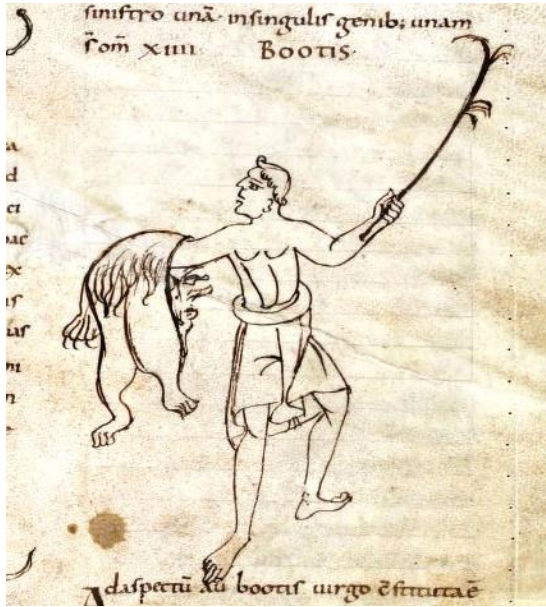 sinistro unā· insingulis genib; unam
s̄om̄ XIIII
BOOTIS·
Adaspectū au bootis uirgo c̄stituta ē